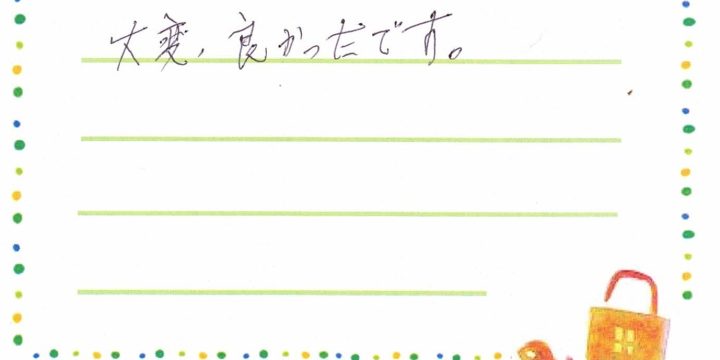 大変、良かったです。